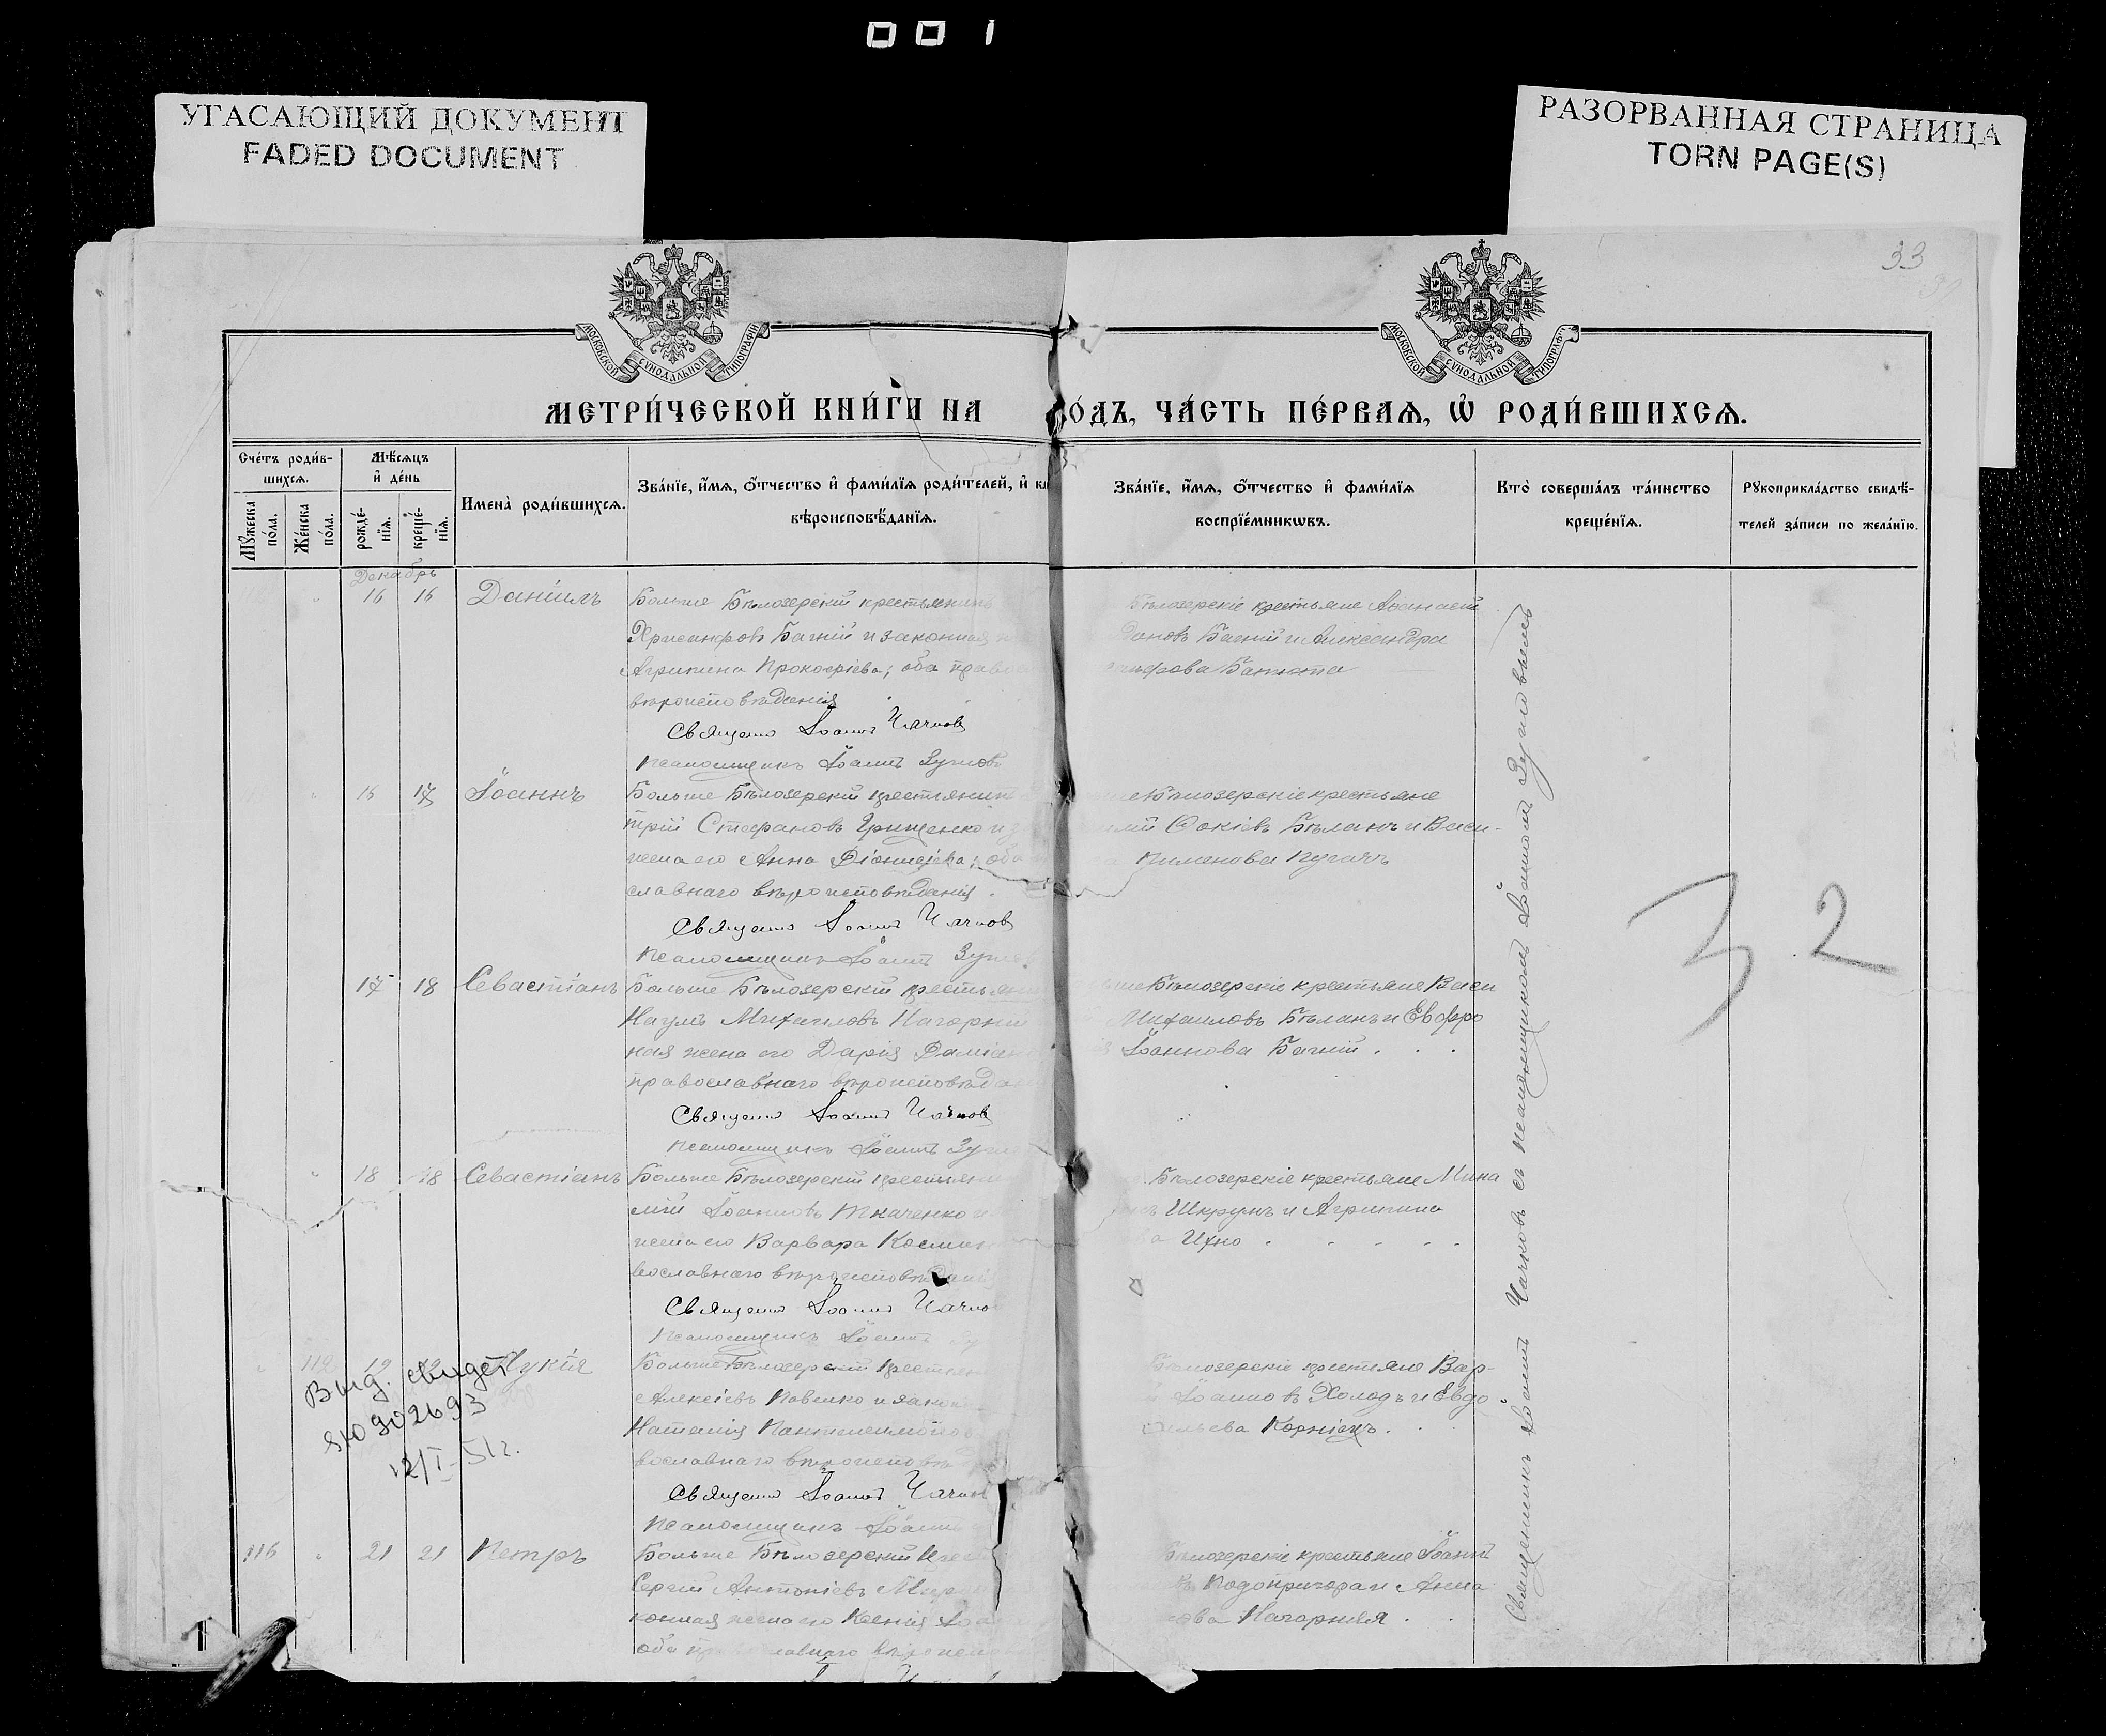 001
УГАСАЮЩИЙ ДОКУМЕНТ
FADED DOCUMENT
РАЗОРВАННАЯ СТРАНИЦА
TORN PAGE(S)
33
МОСКОВСКОЙ СѴНОДАЛЬНОЙ ТИПОГРАФІИ
МОСКОВСКОЙ СѴНОДАЛЬНОЙ ТИПОГРАФІИ
МЕТРИ́ЧЕСКОЙ КНИ́ГИ НА
О́ДЪ, ЧА́СТЬ ПЕ́РВАѦ, Ѡ҆ РОДИ́ВШИХСѦ.
Сче́тъ роди́в-
шихсѧ.
Мꙋ́жеска по́ла.
Же́нска по́ла.
Мѣ́сѧцъ
и҆ де́нь
рожде́-
нїѧ.
креще́-
нїѧ.
Имена̀ роди́вшихсѧ.
Зва́нїе, и҆́мѧ, ѻ҆́тчество и҆ фами́лїѧ роди́телей, и҆ ка
вѣроисповѣ́данїѧ.
Зва́нїе, и҆́мѧ, ѻ҆́тчество и҆ фами́лїѧ
воспрїе́мникѡвъ.
Кто̀ соверша́лъ та́инство
креще́нїѧ.
Рꙋкоприкла́дство свидѣ́-
телей за́писи по жела́нїю.
Декабрь
16 16 Даніилъ
Больше Бѣлозерскій крестьянинъ
Хрисанфовъ Багній и законная
Агрипина Прокофіева; оба право
вѣроисповѣданія
Священ Іоаннъ Чачковъ
Псаломщикъ Іоаннъ Зугловъ
Бѣлозерскіе крестьяне Афанасій
Багній и Александра
16 17 Іоаннъ
Больше Бѣлозерскій крестьянинъ
трій Стефановъ Грищенко и з
жена его Анна Діонисіева; оба
славнаго вѣроисповѣданія.
Священ Іоаннъ Чачков
Псаломщикъ Іоаннъ
Бѣлозерскіе крестьяне
Фокіевъ Бѣланъ и Васи-
Пименова Пугачъ
17 18 Севастіанъ
Больше Бѣлозерскій крестьяни
Наумъ Михаиловъ Нагорни
ная жена его Дарія Даміан
православнаго вѣроисповѣдан
Священ Іоаннъ Чачков
Псаломщикъ Іоаннъ
Бѣлозерскіе крестьяне Васи
Михаиловъ Бѣланъ и Евфро
Іоаннова Багній . . .
18 18 Севастіанъ
Больше Бѣлозерскій крестьяни
мій Іоанновъ Ткаченко и
жена его Варвара Космин
вославнаго вѣроисповѣдані
Священ Іоаннъ Чачко
Псаломщикъ Іоаннъ
Бѣлозерскіе крестьяне Мина
Шкрунъ и Агрипина
Ихно . . . . .
112 19 Лукія
Больше Бѣлозерскій крестьян
Алексіевъ Павенко и закон
Наталія Пантелеимонов
вославнаго вѣроисповѣ
Священ Іоаннъ Чачков
Псаломщикъ Іоаннъ
Бѣлозерскіе крестьяне Вар-
Іоанновъ Холодъ и Евдо
Корніецъ . .
Выд. свидет
902693
12/I-51г.
116 21 21 Петръ
Больше Бѣлозерскій крес
Сергій Антоніевъ
конная жена его Ксенія Іоа
оба православнаго вѣроиспо
Бѣлозерскіе крестьяне Іоаннъ
Подопригора и Анна
ова Нагорняя .
Священникъ Іоаннъ Чачковъ съ псаломщикомъ Іоанномъ Зугловымъ
32